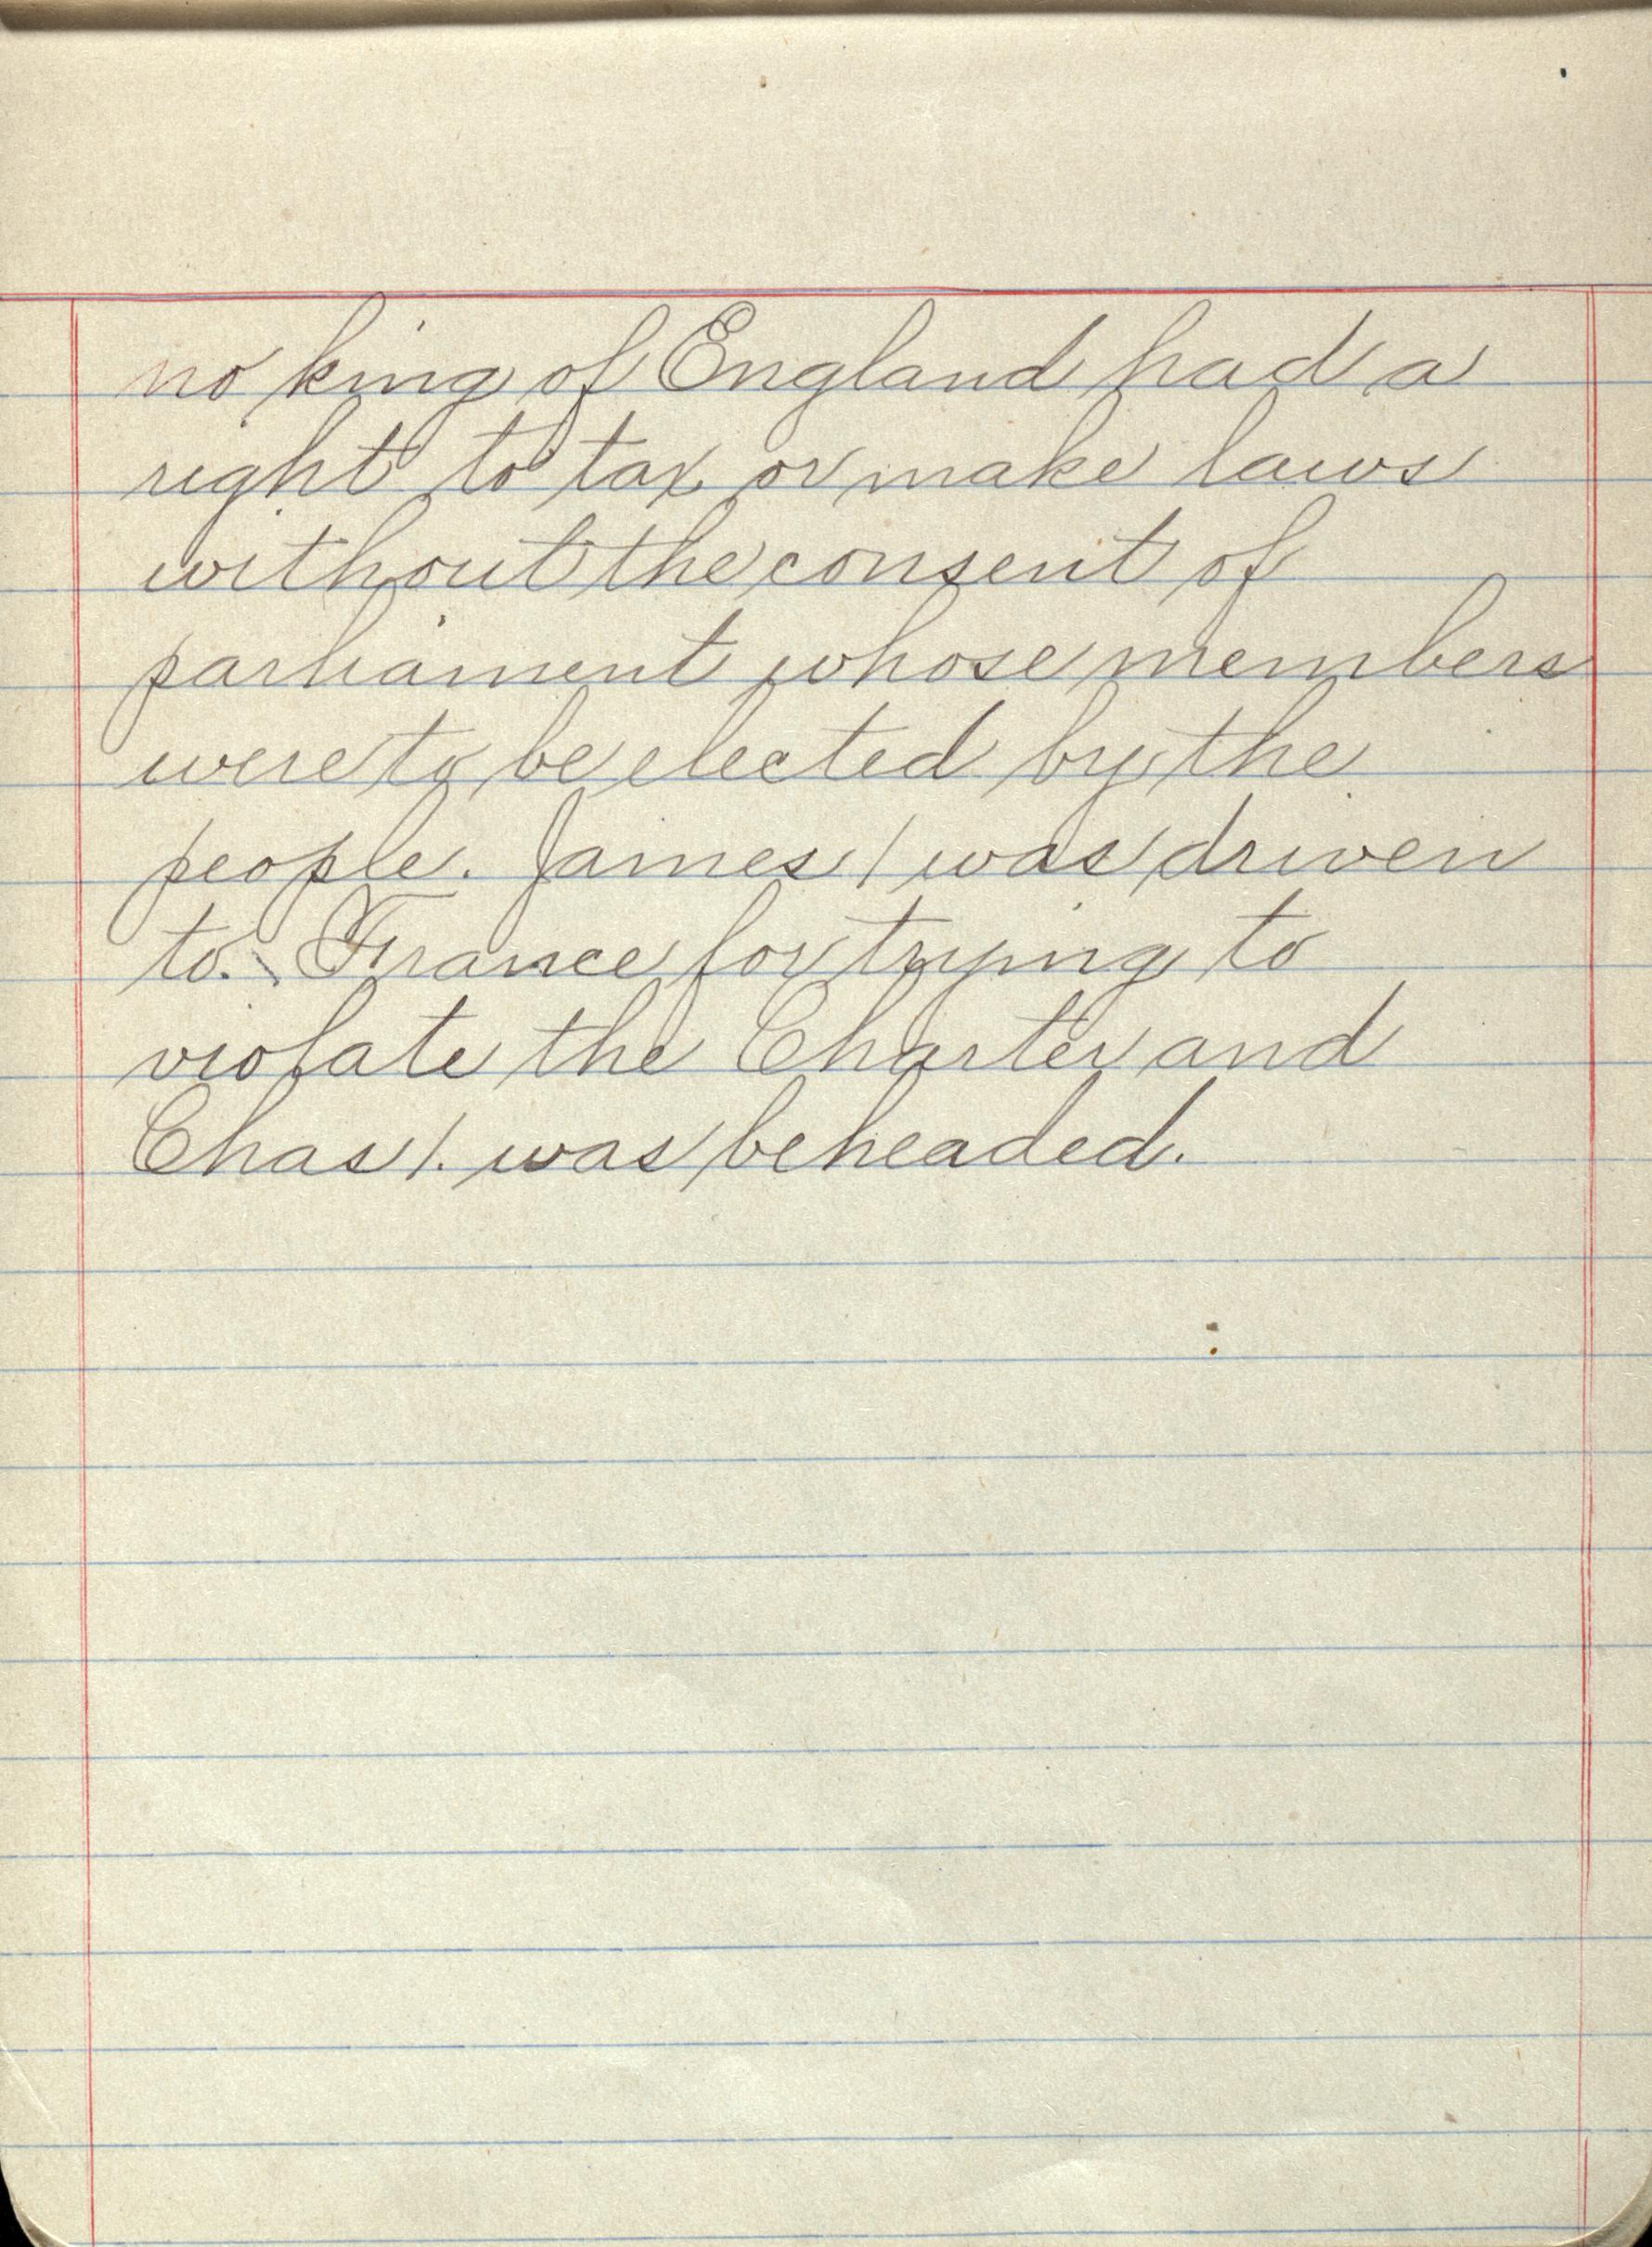 no king of England had a
right to tax or make laws
without the consent of
parliament whose members
were to be elected by the
people. James 1 was driven
to France for trying to
violate the Charter and
Chas 1. was beheaded.